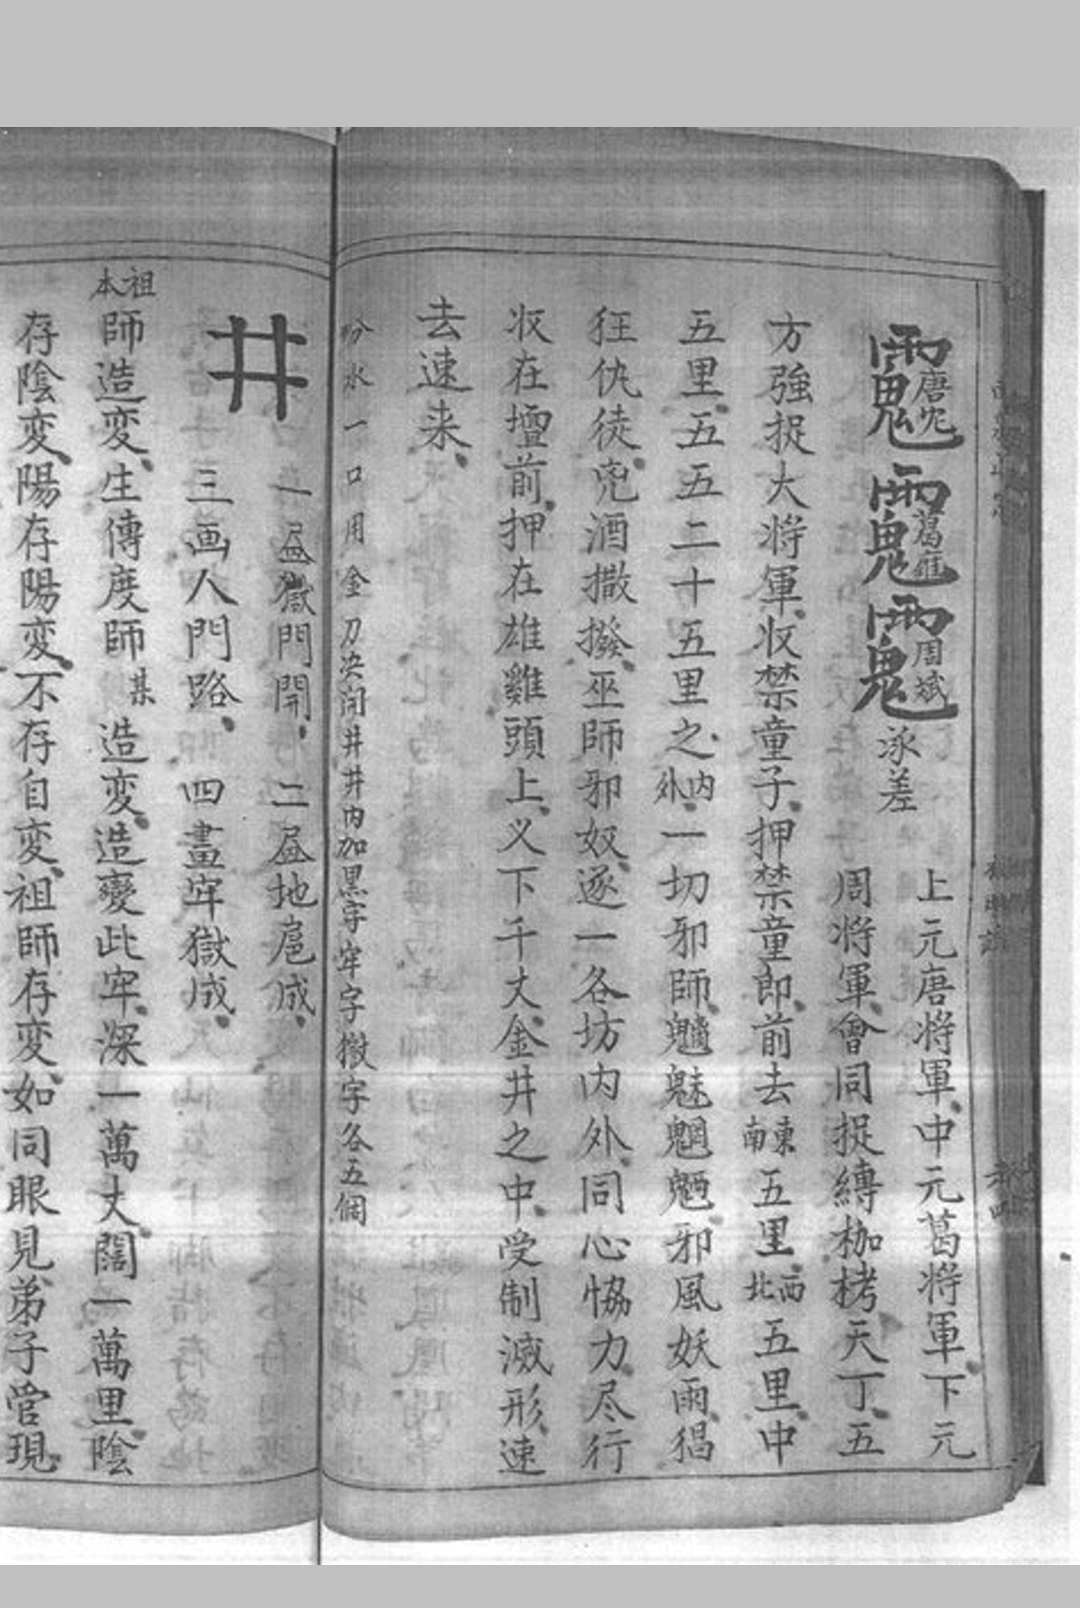 唐宏 葛雍 周斌
上元唐将軍、中元葛将軍、下元
周将軍、會同捉縛枷栲天丁、五
方強捉大将軍、収禁童子、押禁童郎、前去東南五里、西北五里、中
五里、五五二十五里之内外、一切邪師、魑魅魍魎、邪風妖雨、猖
狂仇徒、兇酒撒撥、巫師邪奴、逐一各坊内外、同心恊力、尽行
収在壇前、押在雄雞頭上、义下千丈金井之中、受制滅形、速
去速来、
吩水一口用金刀决開井井内加黒字牢字獄字各五個
井
一畫獄門開、二畫地扈成、
三画人門路、四畫牢獄成、
祖本師造変、生傳度師某造変、造變此牢、深一萬丈、闊一萬里、陰
存陰変、陽存陽変、不存自変、祖師存変、如同眼見、弟子管現、